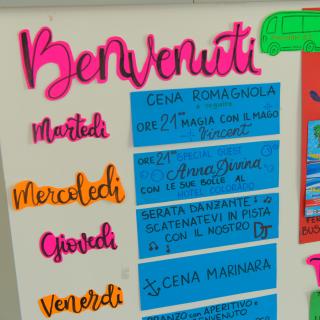 Benvenuti
Martedi
CENA ROMAGNOLA
a seguire
ORE 21⁰⁰ MAGIA CON IL MAGO
Vincent
Mercoledi
ORE 21⁰⁰ SPECIAL GUEST
Anna Divina
CON LE SUE BOLLE AL
HOTEL COLORADO
Giovedi
SERATA DANZANTE
SCATENATEVI IN PISTA
CON IL NOSTRO DJ
Venerdi
CENA MARINARA
PRANZO con APERITIVO e
BENVENUTO